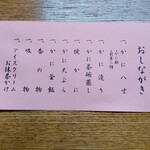 おしながき
一、かに八寸
一、かに造り
一、かに茶碗蒸し
一、焼がに
一、かに天ぷら
一、かに釜飯
一、香の物
一、吸物
一、アイスクリーム
お抹茶かけ